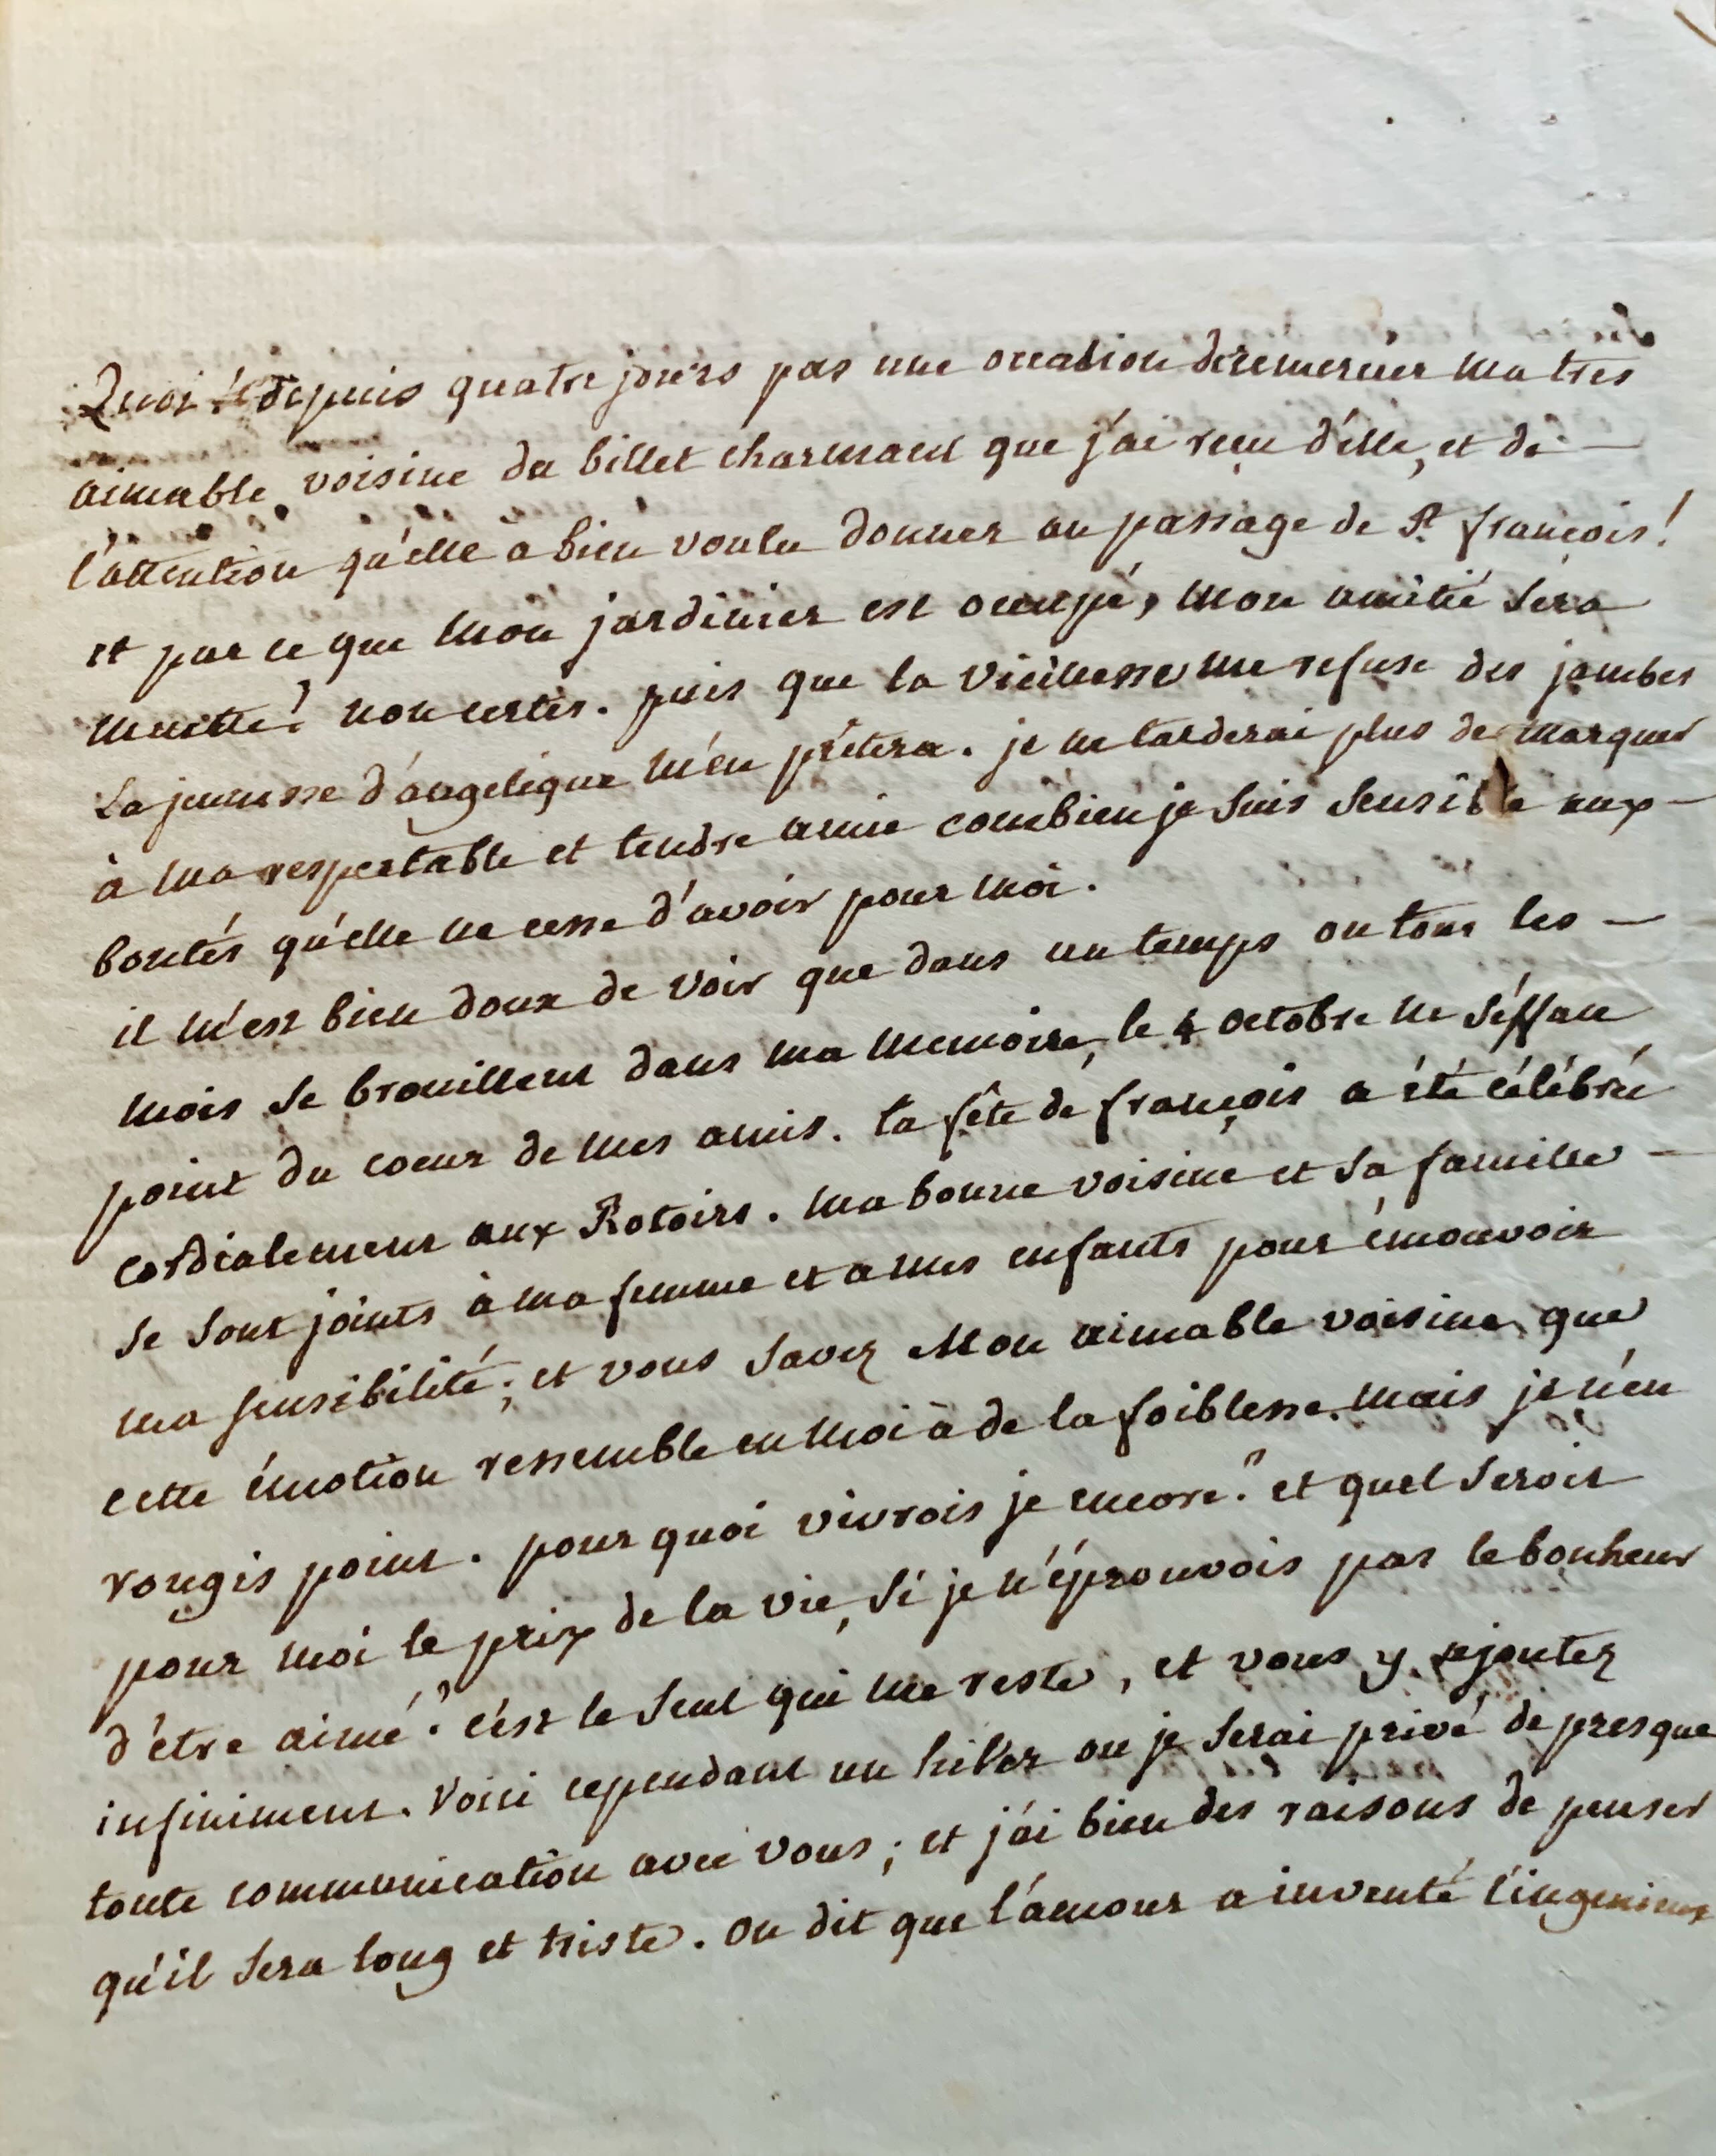 Quoi depuis quatre jours pas une occasion de remercier ma tres
aimable voisine du billet charmant que j'ai reçu d'elle, et de —
l'attention qu'elle a bien voulu donner au passage de St. françois!
et par ce que mon jardinier est occupé, mon amitié sera
muette? non certes. puis que la vieillesse me refuse des jambes
La jeunesse d'angelique m'en prêtera. je ne tarderai plus de marquer
à ma respectable et tendre amie combien je suis sensible aux —
bontés qu'elle ne cesse d'avoir pour moi.
il m'est bien doux de voir que dans un temps ou tous les —
mois se brouillent dans ma memoire, le 4 octobre ne s'efface
point du coeur de mes amis. la fête de françois a été célébrée
cordialement aux Rotoirs. ma bonne voisine et sa famille —
se sont joints à ma femme et a mes enfants pour émouvoir
ma sensibilité; et vous savez Mon aimable voisine que
cette émotion ressemble en moi à de la foiblesse. mais je n'en
rougis point. pour quoi vivrois je encore? et quel seroit
pour moi le prix de la vie, si je n'éprouvois pas le bonheur
d'être aimé? c'est le seul qui me reste, et vous y ajoutez
infiniment. Voici cependant un hiver ou je serai privé de presque
toute communication avec vous; et j'ai bien des raisons de penser
qu'il sera long et triste. on dit que l'amour a inventé l'ingenieux